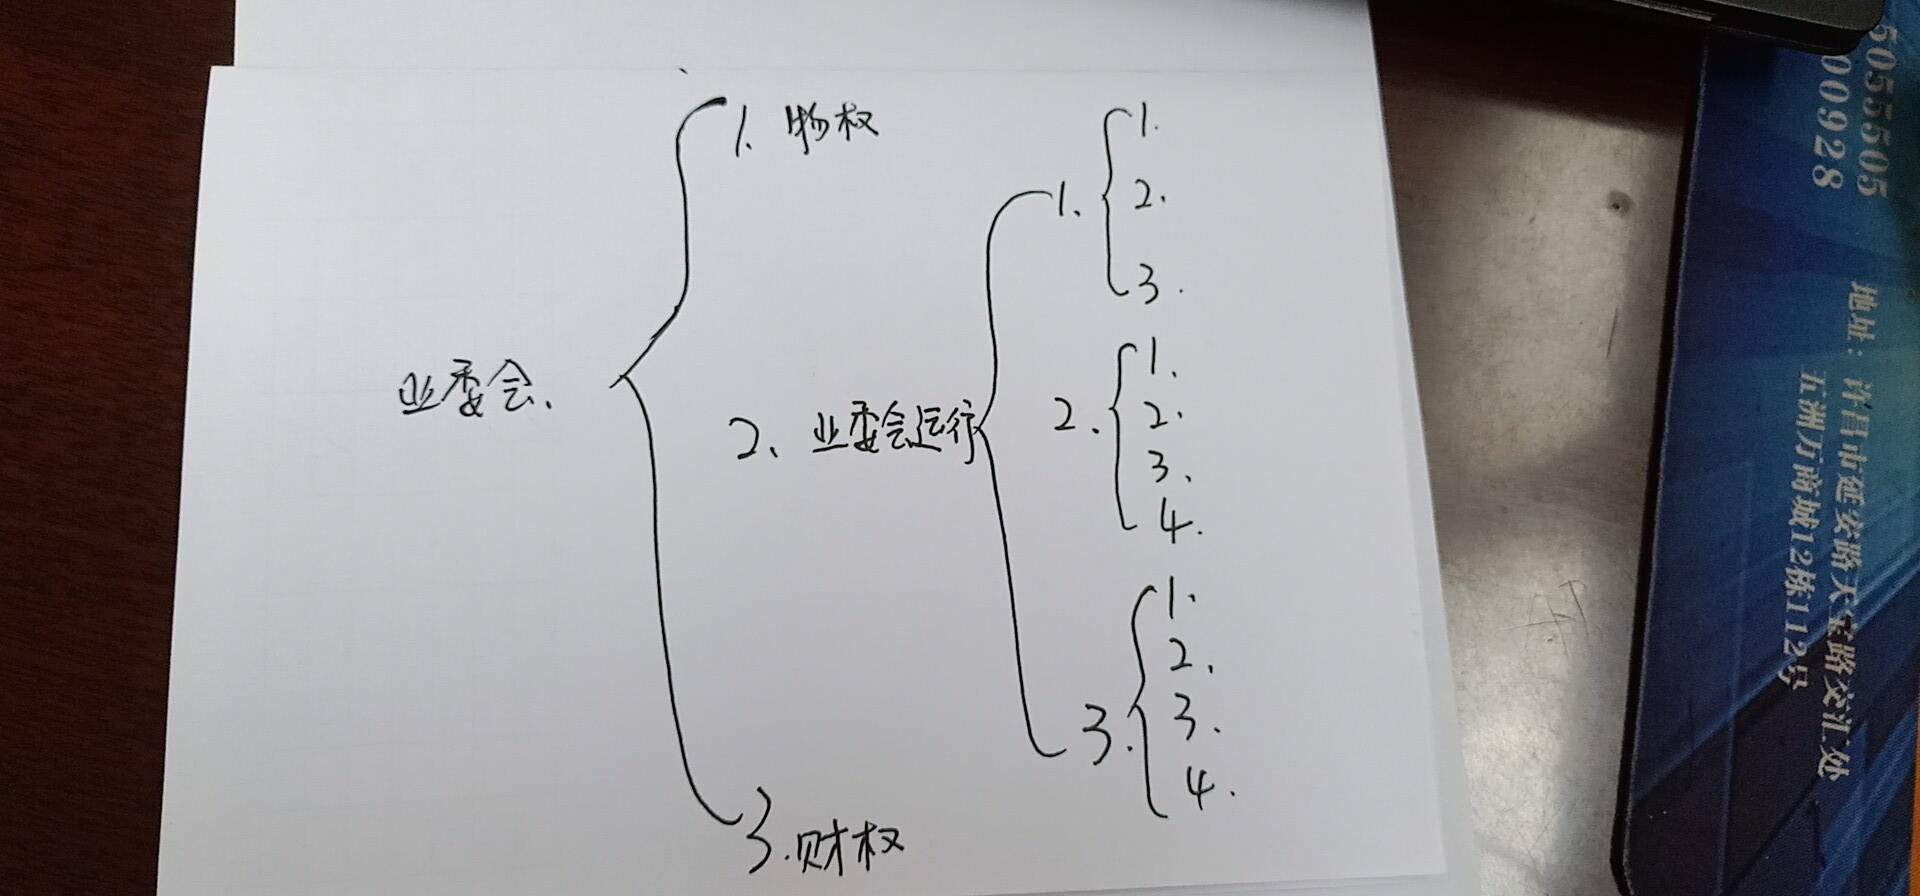 业委会、
1、物权
2、业委会运行
1.
1.
2.
3.
2.
1.
2.
3、
4.
3.
1.
2、
3.
4.
3.财权
5055505
00928
地址：许昌市延安路天宝路交汇处
五洲万商城12栋112号